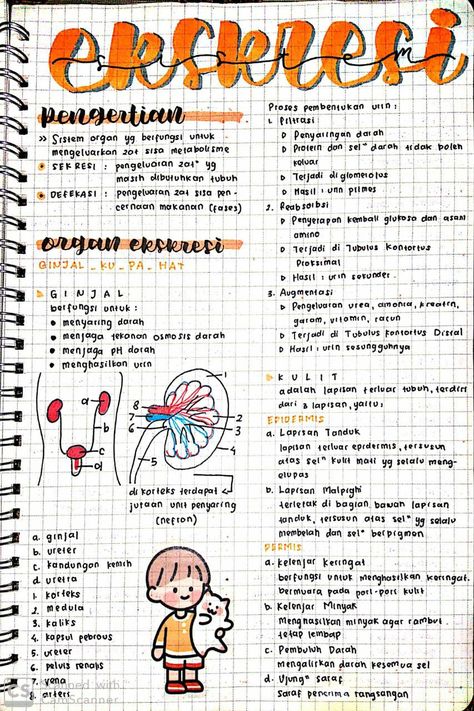 ekskresi
sistem
pengertian
>> Sistem organ yg berfungsi untuk
mengeluarkan zat sisa metabolisme
SEKRESI : pengeluaran zat² yg
masih dibutuhkan tubuh
DEFEKASI : pengeluaran zat sisa pen-
cernaan makanan (fases)
organ ekskresi
GINJAL - KU - PA - HAT
GINJAL
berfungsi untuk :
menyaring darah
menjaga tekanan osmosis darah
menjaga pH darah
menghasilkan urin
a
b
c
d
1
8
7
6
2
3
4
5
5
di korteks terdapat
jutaan unit penyaring
(nefron)
a. ginjal
b. ureter
c. kandungan kemih
d. uretra
1. korteks
2. medula
3. kaliks
4. kapsul pebrous
5. ureter
6. pelvis renalis
7. vena
8. arteri
Proses pembentukan urin :
1. Filtrasi
Penyaringan darah
Protein dan sel² darah tidak boleh
keluar
Terjadi di glomerolus
Hasil : urin primer
2. Reabsorbsi
Penyerapan kembali glukosa dan asam
amino
Terjadi di Tubulus Kontortus
Proksimal
Hasil : urin sekunder
3. Augmentasi
Pengeluaran urea, amonia, kreatin,
garam, vitamin, racun
Terjadi di Tubulus Kontortus Distal
Hasil : urin sesungguhnya
KULIT
adalah lapisan terluar tubuh, terdiri
dari 2 lapisan, yaitu;
EPIDERMIS
a. Lapisan Tanduk
lapisan terluar epidermis, tersusun
atas sel² kulit mati yg selalu meng-
elupas
b. Lapisan Malpighi
terletak di bagian bawah lapisan
tanduk, tersusun atas sel² yg selalu
membelah dan sel² berpigmen
DERMIS
a. Kelenjar Keringat
berfungsi untuk menghasilkan keringat.
bermuara pada pori-pori kulit
b. Kelenjar Minyak
menghasilkan minyak agar rambut
tetap lembap
c. Pembuluh Darah
mengalirkan darah kesemua sel
d. Ujung² saraf
saraf penerima rangsangan
CS
Scanned with
CamScanner